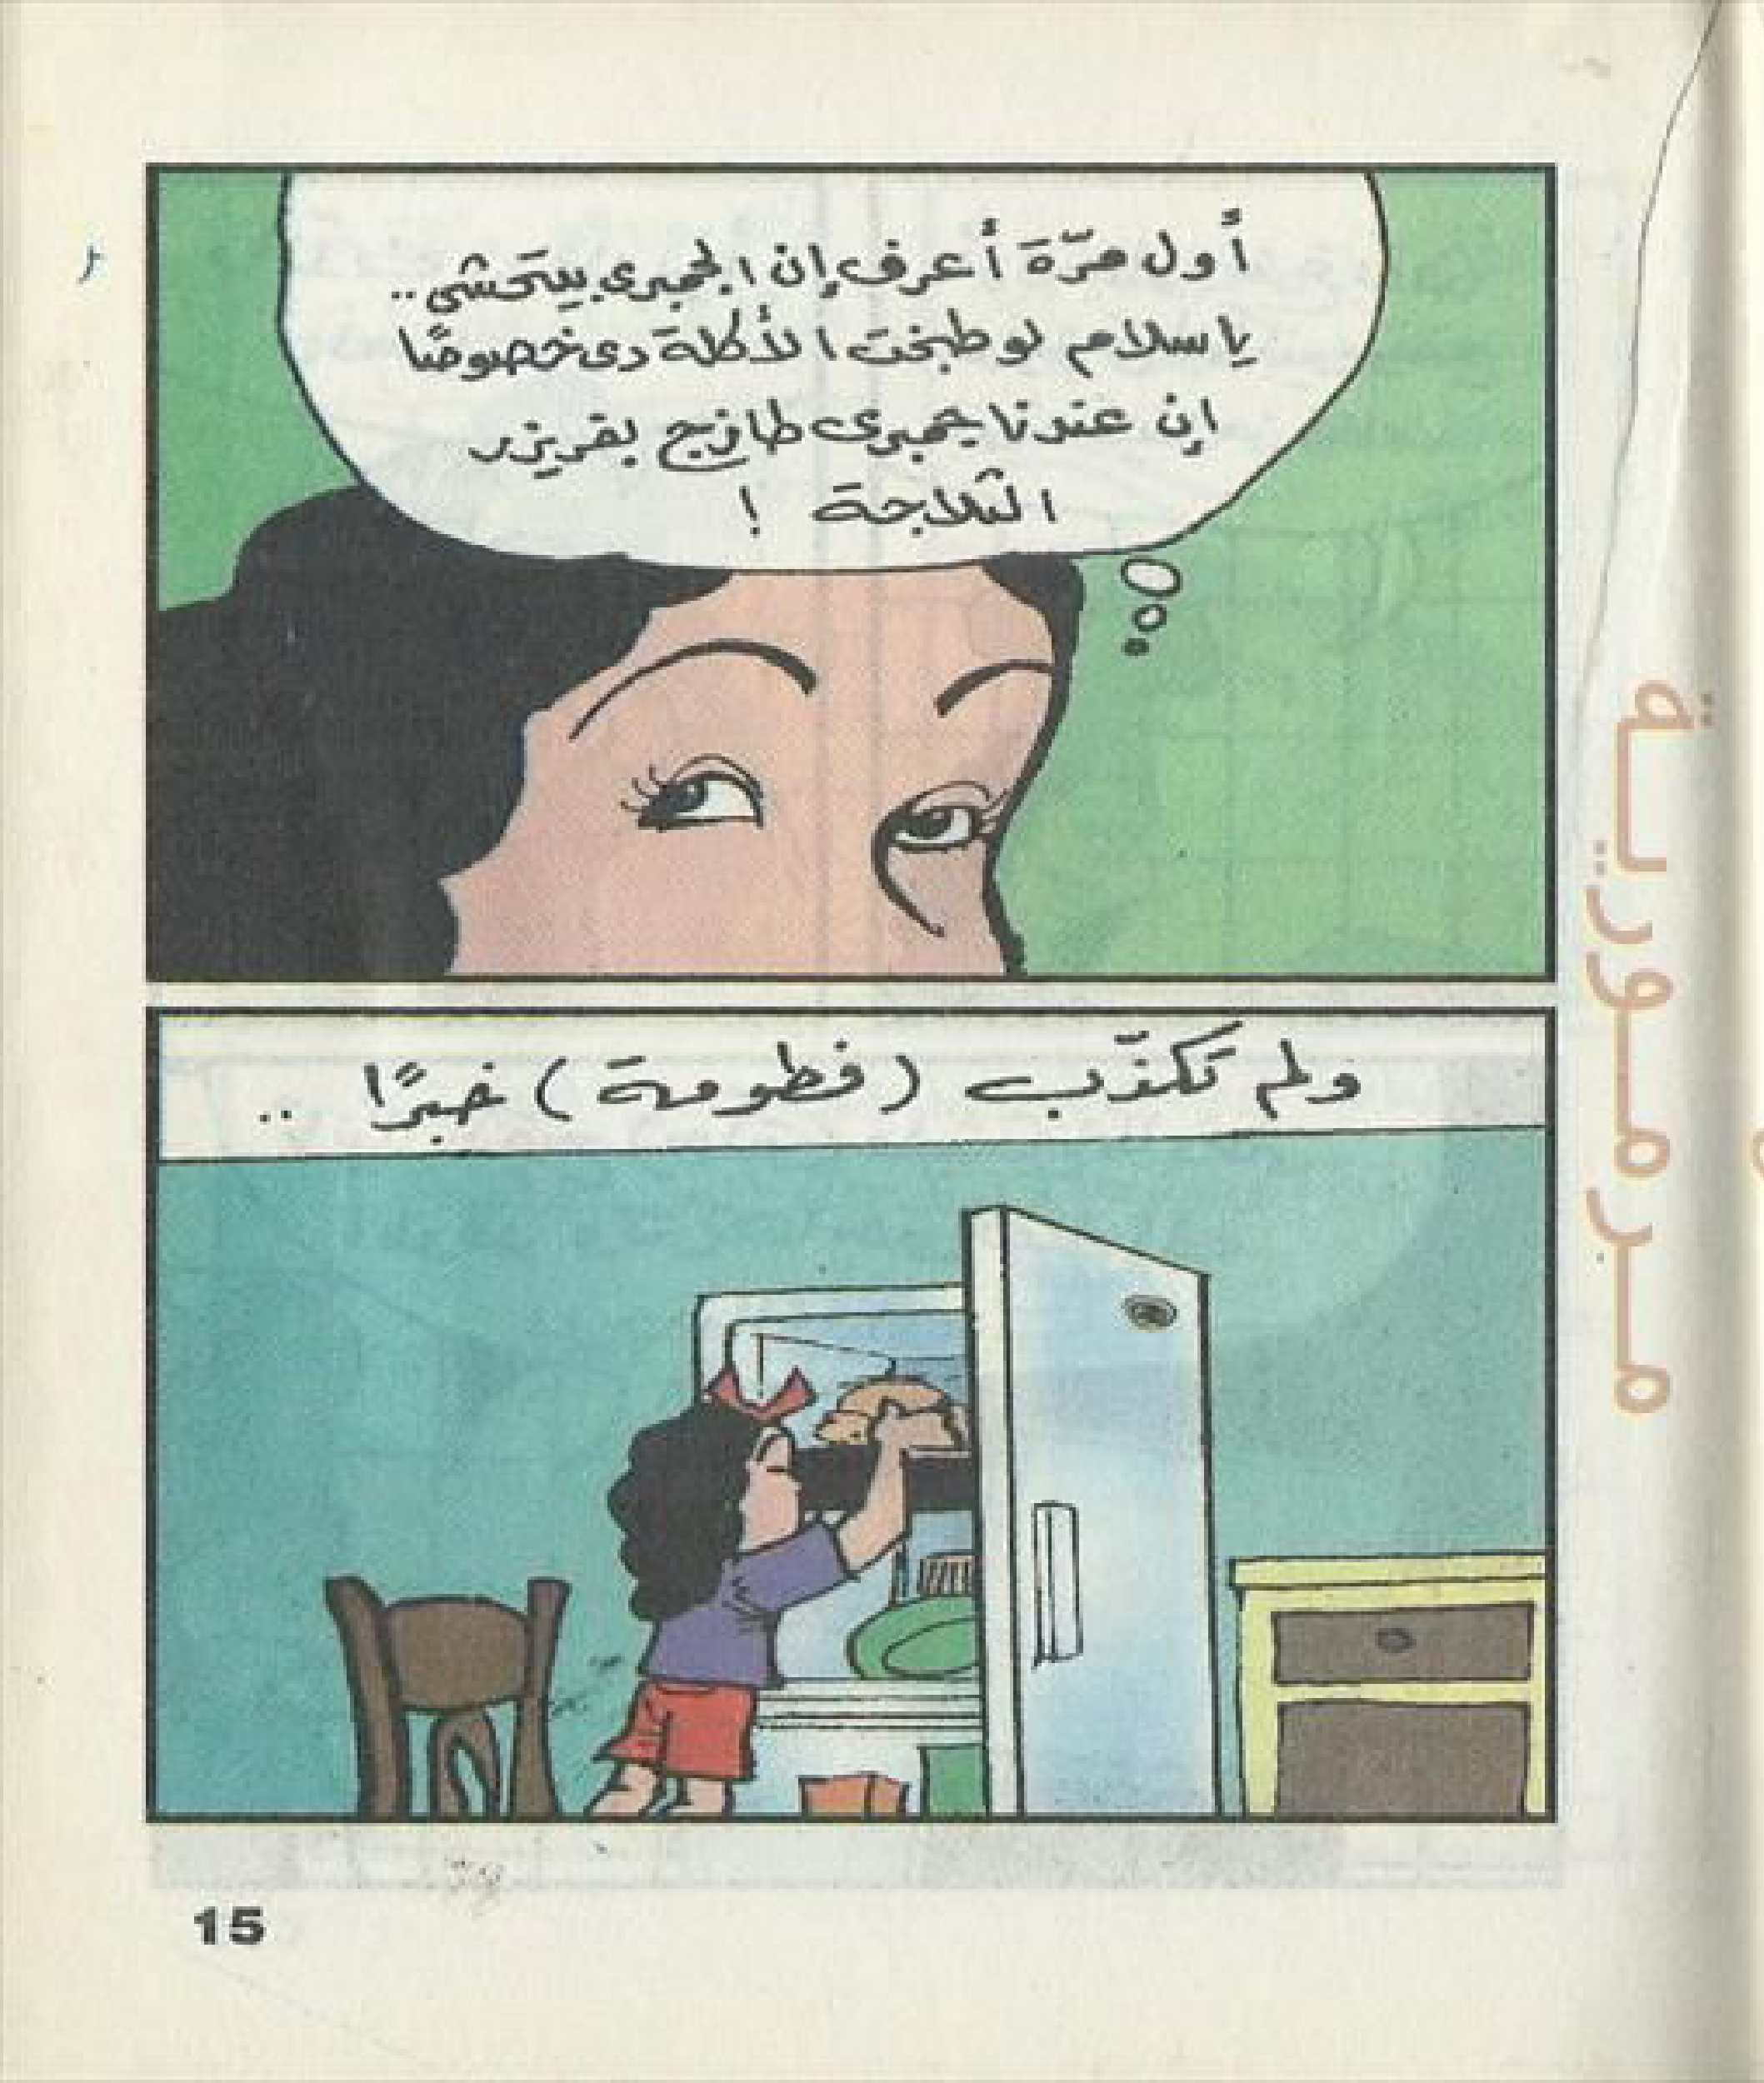 أول مرّة أعرف إن الجمبرى بيتحشى..
ياسلام لو طبخت الأكلة دى خصوصًا
إن عندنا جمبرى طازج بفريزر
الثلاجة !
ولم تكذّب (فطومة) خبرًا ..
15
مرمورية